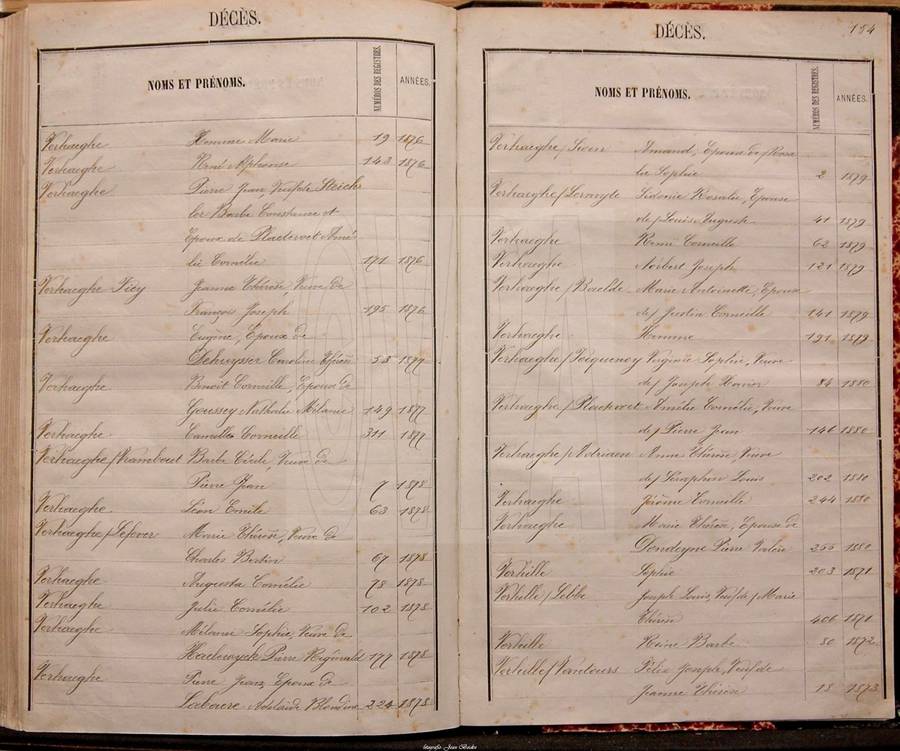 DÉCÈS.
NOMS ET PRÉNOMS. NUMÉROS DES REGISTRES. ANNÉES.
Verhaeghe Homme Marie 19 1876
Verhaeghe René Alphonse 143 1876
Verhaeghe Pierre Jean, Veuf de Steich
ler Barbe Constance et
Epoux de Plaetevoet Amé
lie Cornélie 171 1876
Verhaeghe Jeanne Thérèse, Veuve de
François Joseph 195 1876
Verhaeghe Eugène, Epoux de
Caroline 58 1877
Verhaeghe Benoit Corneille, Epoux de
Goussey Nathalie Mélanie 149 1877
Verhaeghe Camille Corneille 311 1877
Verhaeghe/Vrambout Barbe Cécile, Veuve de
Pierre Jean 7 1878
Verhaeghe Léon Emile 63 1878
Verhaeghe/Lefever Marie Thérèse, Veuve de
Charles Bertin 67 1878
Verhaeghe Augusta Cornélie 78 1878
Verhaeghe Julie Cornélie 102 1878
Verhaeghe Mélanie Sophie, Veuve de
Pierre Réginald 177 1878
Verhaeghe Pierre Jean, Epoux de
Labaere Adelaïde Blondine 224 1878
DÉCÈS. 184
NOMS ET PRÉNOMS. NUMÉROS DES REGISTRES. ANNÉES.
Verhaeghe/ Amand, Epoux de/Rosa
lie Sophie 2 1879
Verhaeghe/Lermyte Sidonie Rosalie, Epouse
de/Louis Auguste 41 1879
Verhaeghe Remi Corneille 62 1879
Verhaeghe Norbert Joseph 121 1879
Verhaeghe/Baelde Marie Antoinette, Epouse
de/Justin Corneille 141 1879
Verhaeghe Homme 191 1879
Verhaeghe/ Virginie Sophie, Veuve
de/Joseph Xavier 84 1880
Verhaeghe/Plaetevoet Amélie Cornélie, Veuve
de/Pierre Jean 146 1880
Verhaeghe/Adriaen Anne Thérèse, Veuve
de/Séraphin Louis 202 1880
Verhaeghe Jérôme Corneille 244 1880
Verhaeghe Marie Thérèse, Epouse de
Dondeyne Pierre 255 1880
Verhille Sophie 203 1871
Verhille/Lebbe Joseph Louis, Veuf de/Marie
Thérèse 406 1871
Verhille Reine Barbe 80 1872
Verhille/Vantours Félix Joseph, Veuf de
Jeanne Thérèse 18 1873
fotografie Jean Beckx